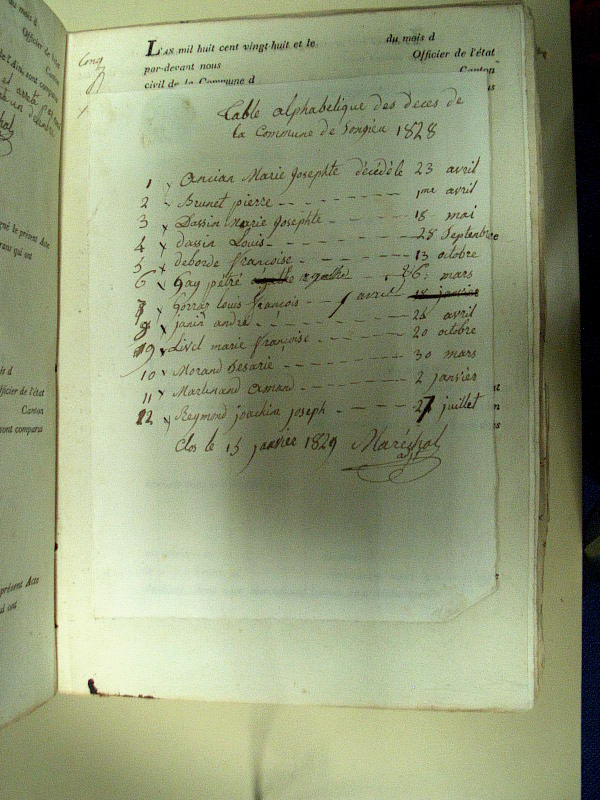 du mois d
Officier de l'état
L'AN mil huit cent vingt-huit et le du mois d
par-devant nous Officier de l'état
civil de la Commune d Canton
Table alphabetique des deces de
la Commune de Songieu 1828
1 Ancian Marie Josephte décédé le 23 avril
2 Brunet pierre 1me avril
3 Dassin Marie Josephte 18 mai
4 dassin Louis 28 Septembre
5 deborde françoise 13 octobre
6 Gay petré agathe 26 mars
7 Gorraz louis françois 1 avril 18 janvier
8 janin andré 26 avril
9 Livet marie françoise 20 octobre
10 Morand Desarie 30 mars
11 Martinand Amand 2 janvier
12 Reymond joachim joseph 27 juillet
Clos le 15 janvier 1829 Maréchal
adj
gné le présent Acte
rans qui ont
is d
fficier de l'état
Canton
ont comparus
présent Acte
ui ont